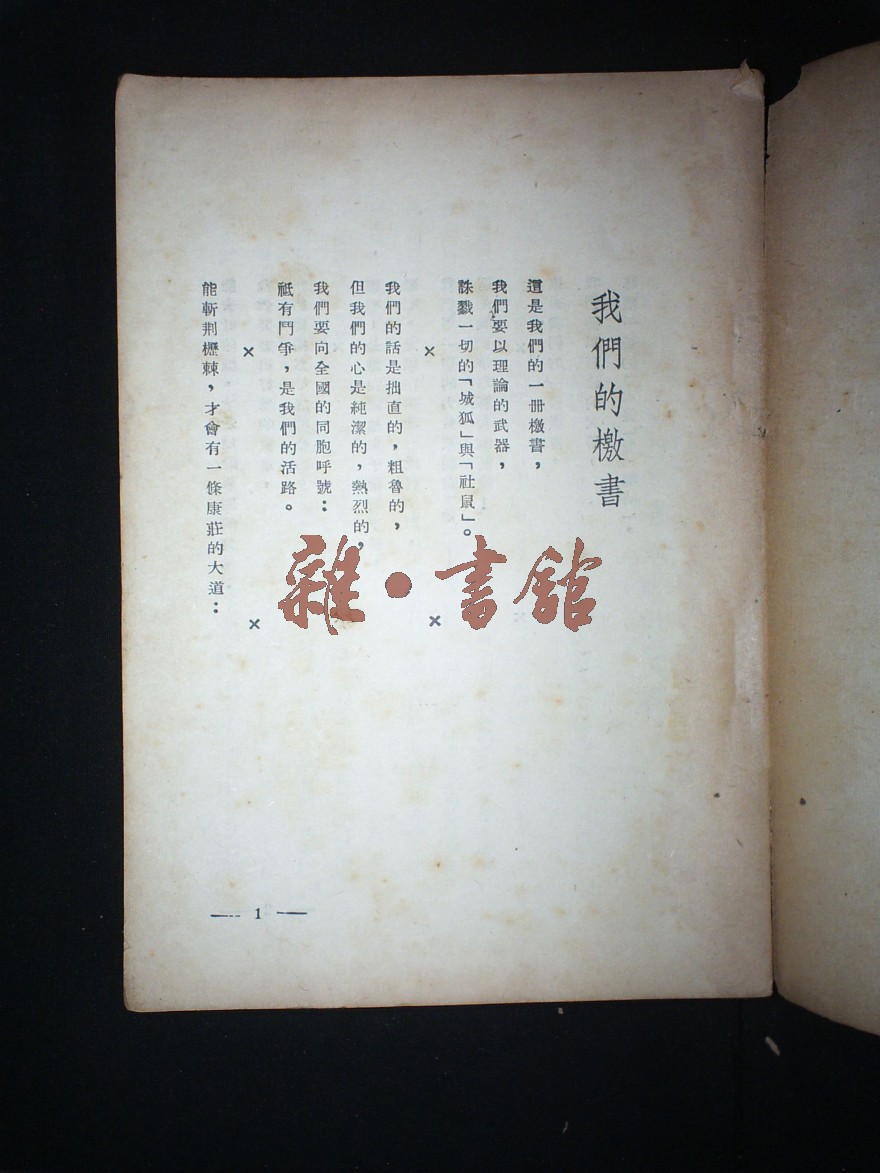 我們的檄書
這是我們的一冊檄書，
我們要以理論的武器，
誅戮一切的「城狐」與「社鼠」。
× ×
我們的話是拙直的，粗魯的，
但我們的心是純潔的，熱烈的，
我們要向全國的同胞呼號：
祗有鬥爭，是我們的活路。
× ×
能斬荆櫪棘，才會有一條康莊的大道：
— 1 —
雜·書館